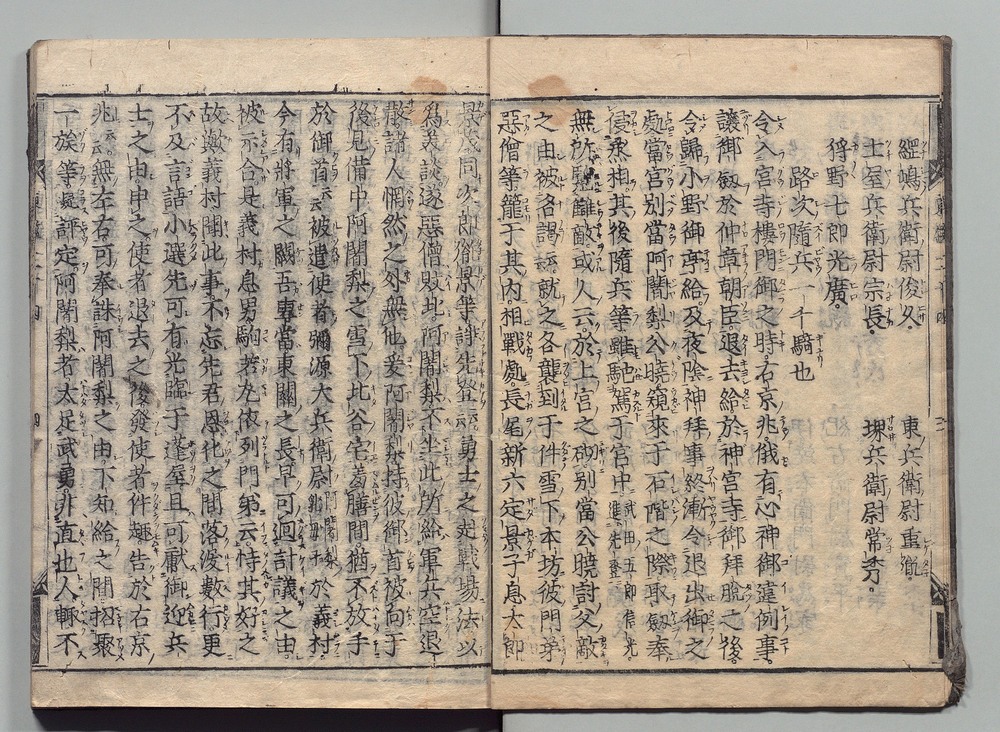 經嶋兵衛尉俊久 東兵衛尉重胤
土屋兵衛尉宗長 堺兵衛尉常秀。
狩野七郎光廣。
路次隨兵一千騎也
令入宮寺樓門御之時。右京兆俄有心神御違例事。
讓御劔於仲章朝臣。退去給於神宮寺御拜脫之後。
令歸小野御亭給及夜陰神拜事終漸令退出御之
處當宮別當阿闍梨公曉窺來于石階之際取劔奉
侵丞相其後隨兵等雖馳駕于宮中武田五郎信光。進先登
無所覓讎敵或人云於上宮之砌別當公曉討父敵
之由被名謁就之各襲到于件雪下本坊彼門弟
惡僧等籠于其內相戰處。長尾新六定景子息太郎
景茂同次郎胤景等諍先登云云勇士之赴戰場法以
爲美談遂惡僧敗北阿闍梨不坐此所給軍兵空退
散諸人惘然之外無他爰阿闍梨持彼御首被向于
後見備中阿闍梨之雪下北谷宅羞膳間猶不放手
於御首云云被遣使者彌源太兵衛尉阿闍梨乳母子於義村
今有將軍之闕吾專當東關之長早可廻計議之由
被示合是義村息男駒若丸依列門弟云恃其好之
故歟義村聞此事不忘先君恩化之間落淚數行更
不及言語小選先可有光臨于蓬屋且可獻御迎兵
士之由申之使者退去之後發使者件趣告於右京
兆云云無左右可奉誅阿闍梨之由下知給之間招聚
一族等凝評定阿闍梨者太足武勇。非直也人輙不